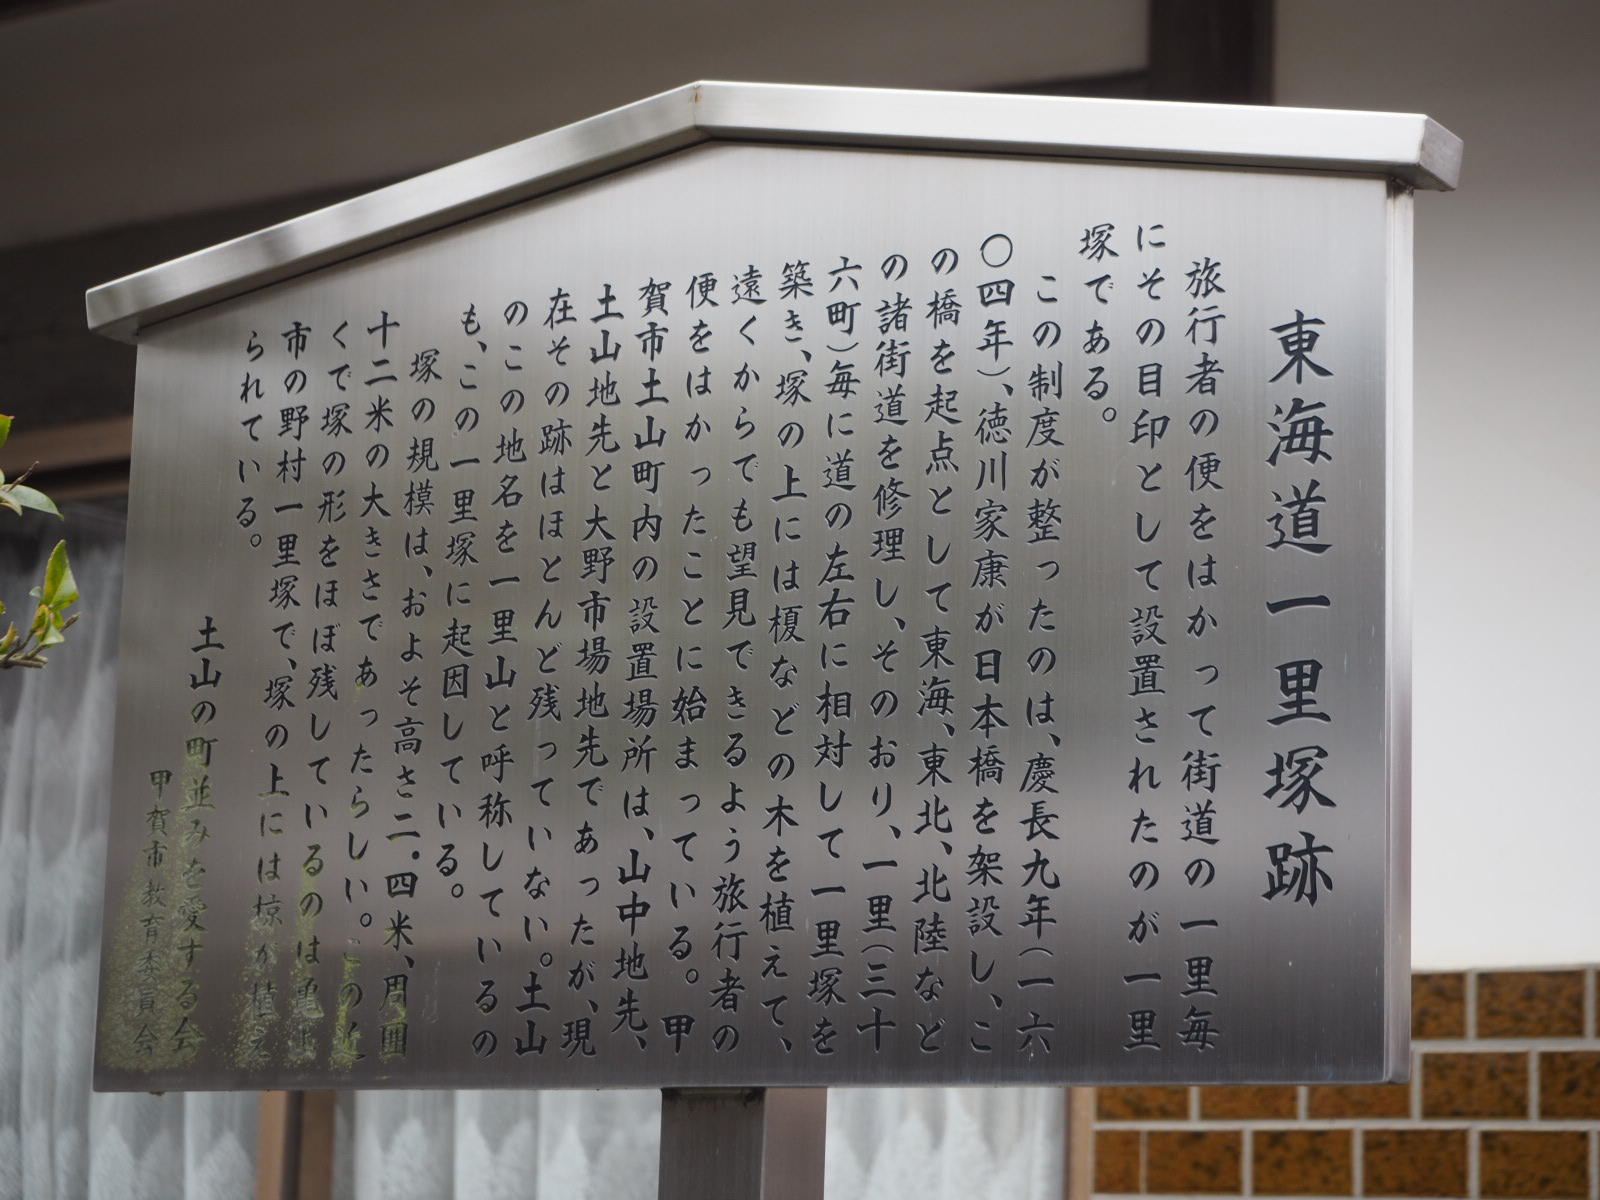 東海道一里塚跡
旅行者の便をはかって街道の一里毎
にその目印として設置されたのが一里
塚である。
この制度が整ったのは、慶長九年(一六
〇四年)、徳川家康が日本橋を架設し、こ
の橋を起点として東海、東北、北陸など
の諸街道を修理し、そのおり、一里(三十
六町)毎に道の左右に相対して一里塚を
築き、塚の上には榎などの木を植えて、
遠くからでも望見できるよう旅行者の
便をはかったことに始まっている。甲
賀市土山町内の設置場所は、山中地先、
土山地先と大野市場地先であったが、現
在その跡はほとんど残っていない。土山
のこの地名を一里山と呼称しているの
も、この一里塚に起因している。
塚の規模は、およそ高さ二.四米、周囲
十二米の大きさであったらしい。この近
くで塚の形をほぼ残しているのは亀山
市の野村一里塚で、塚の上には椋が植え
られている。
土山の町並みを愛する会
甲賀市教育委員会